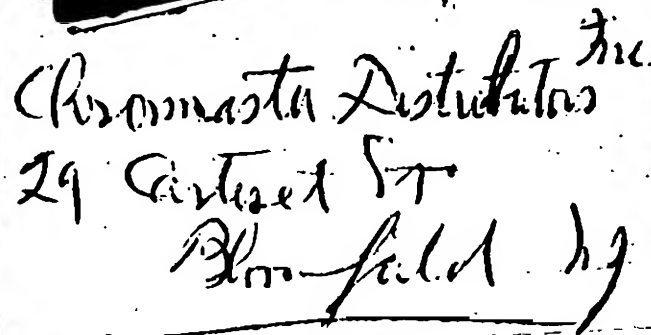 Chrommasta Distributors Inc.
29 Carteret St
Bloomfield NJ